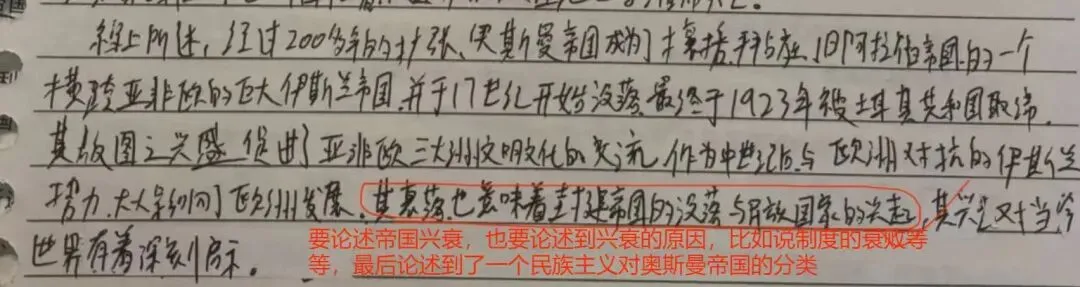 综上所述,经过200多年的扩张,奥斯曼帝国成为了囊括拜占庭、旧阿拉伯帝国的一个
横跨亚非欧的巨大伊斯兰帝国,并于17世纪开始没落,最终于1923年被土耳其共和国取缔.
其版图之兴盛促进了亚非欧三大洲文明文化的交流,作为中世纪后与欧洲对抗的伊斯兰
势力,大大影响了欧洲发展.其衰落也意味着封建帝国的没落与民族国家的兴起,其兴亡对当今
世界有着深刻启示。
要论述帝国兴衰,也要论述到兴衰的原因,比如说制度的衰败等
等,最后论述到了一个民族主义对奥斯曼帝国的分类